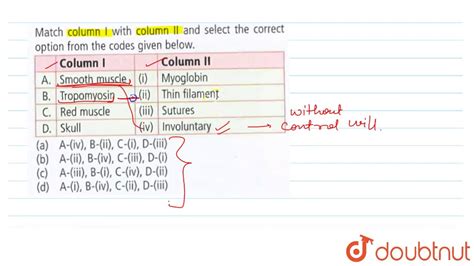 Match column I with column II and select the correct
option from the codes given below.
Column I Column II
A. Smooth muscle (i) Myoglobin
B. Tropomyosin (ii) Thin filament
C. Red muscle (iii) Sutures
D. Skull (iv) Involuntary
without
control will.
(a) A-(iv), B-(ii), C-(i), D-(iii)
(b) A-(ii), B-(iv), C-(iii), D-(i)
(c) A-(iii), B-(i), C-(iv), D-(ii)
(d) A-(i), B-(iv), C-(ii), D-(iii)
doubtnut